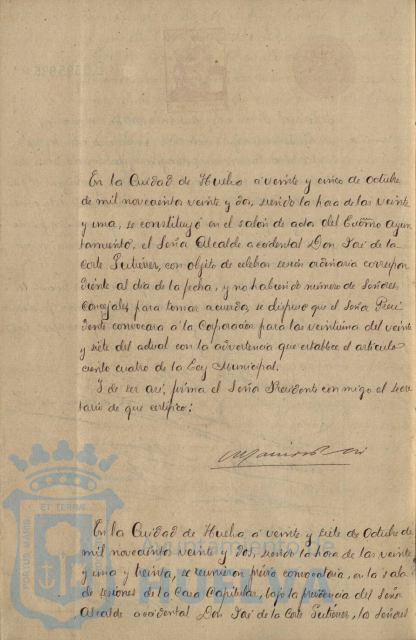 En la Ciudad de Huelva á veinte y cinco de Octubre
de mil novecientos veinte y dos, siendo la hora de las veinte
y una, se constituyó en el salón de actos del Excmo Ayun
tamiento, el Señor Alcalde accidental Don José de la
Corte Gutiérrez, con objeto de celebrar sesión ordinaria correspon
diente al día de la fecha, y no habiendo número de Señores
Concejales para tomar acuerdo, se dispuso que el Señor Presi
dente convocara á la Corporación para las veintiuna del veinte
y siete del actual con la advertencia que establece el artículo
ciento cuatro de la Ley Municipal.
Y de ser así, firma el Señor Presidente conmigo el Secre
tario de que certifico:
En la Ciudad de Huelva, á veinte y siete de Octubre
de mil novecientos veinte y dos, siendo la hora de las veinte
y una y treinta, se reunieron previa convocatoria, en la sala
de sesiones de la Casa Capitular, bajo la presidencia del Señor
Alcalde accidental Don José de la Corte Gutiérrez, los Señores
Ayuntamiento de
HUELVA
PORTUS MARIS
ET TERRAE